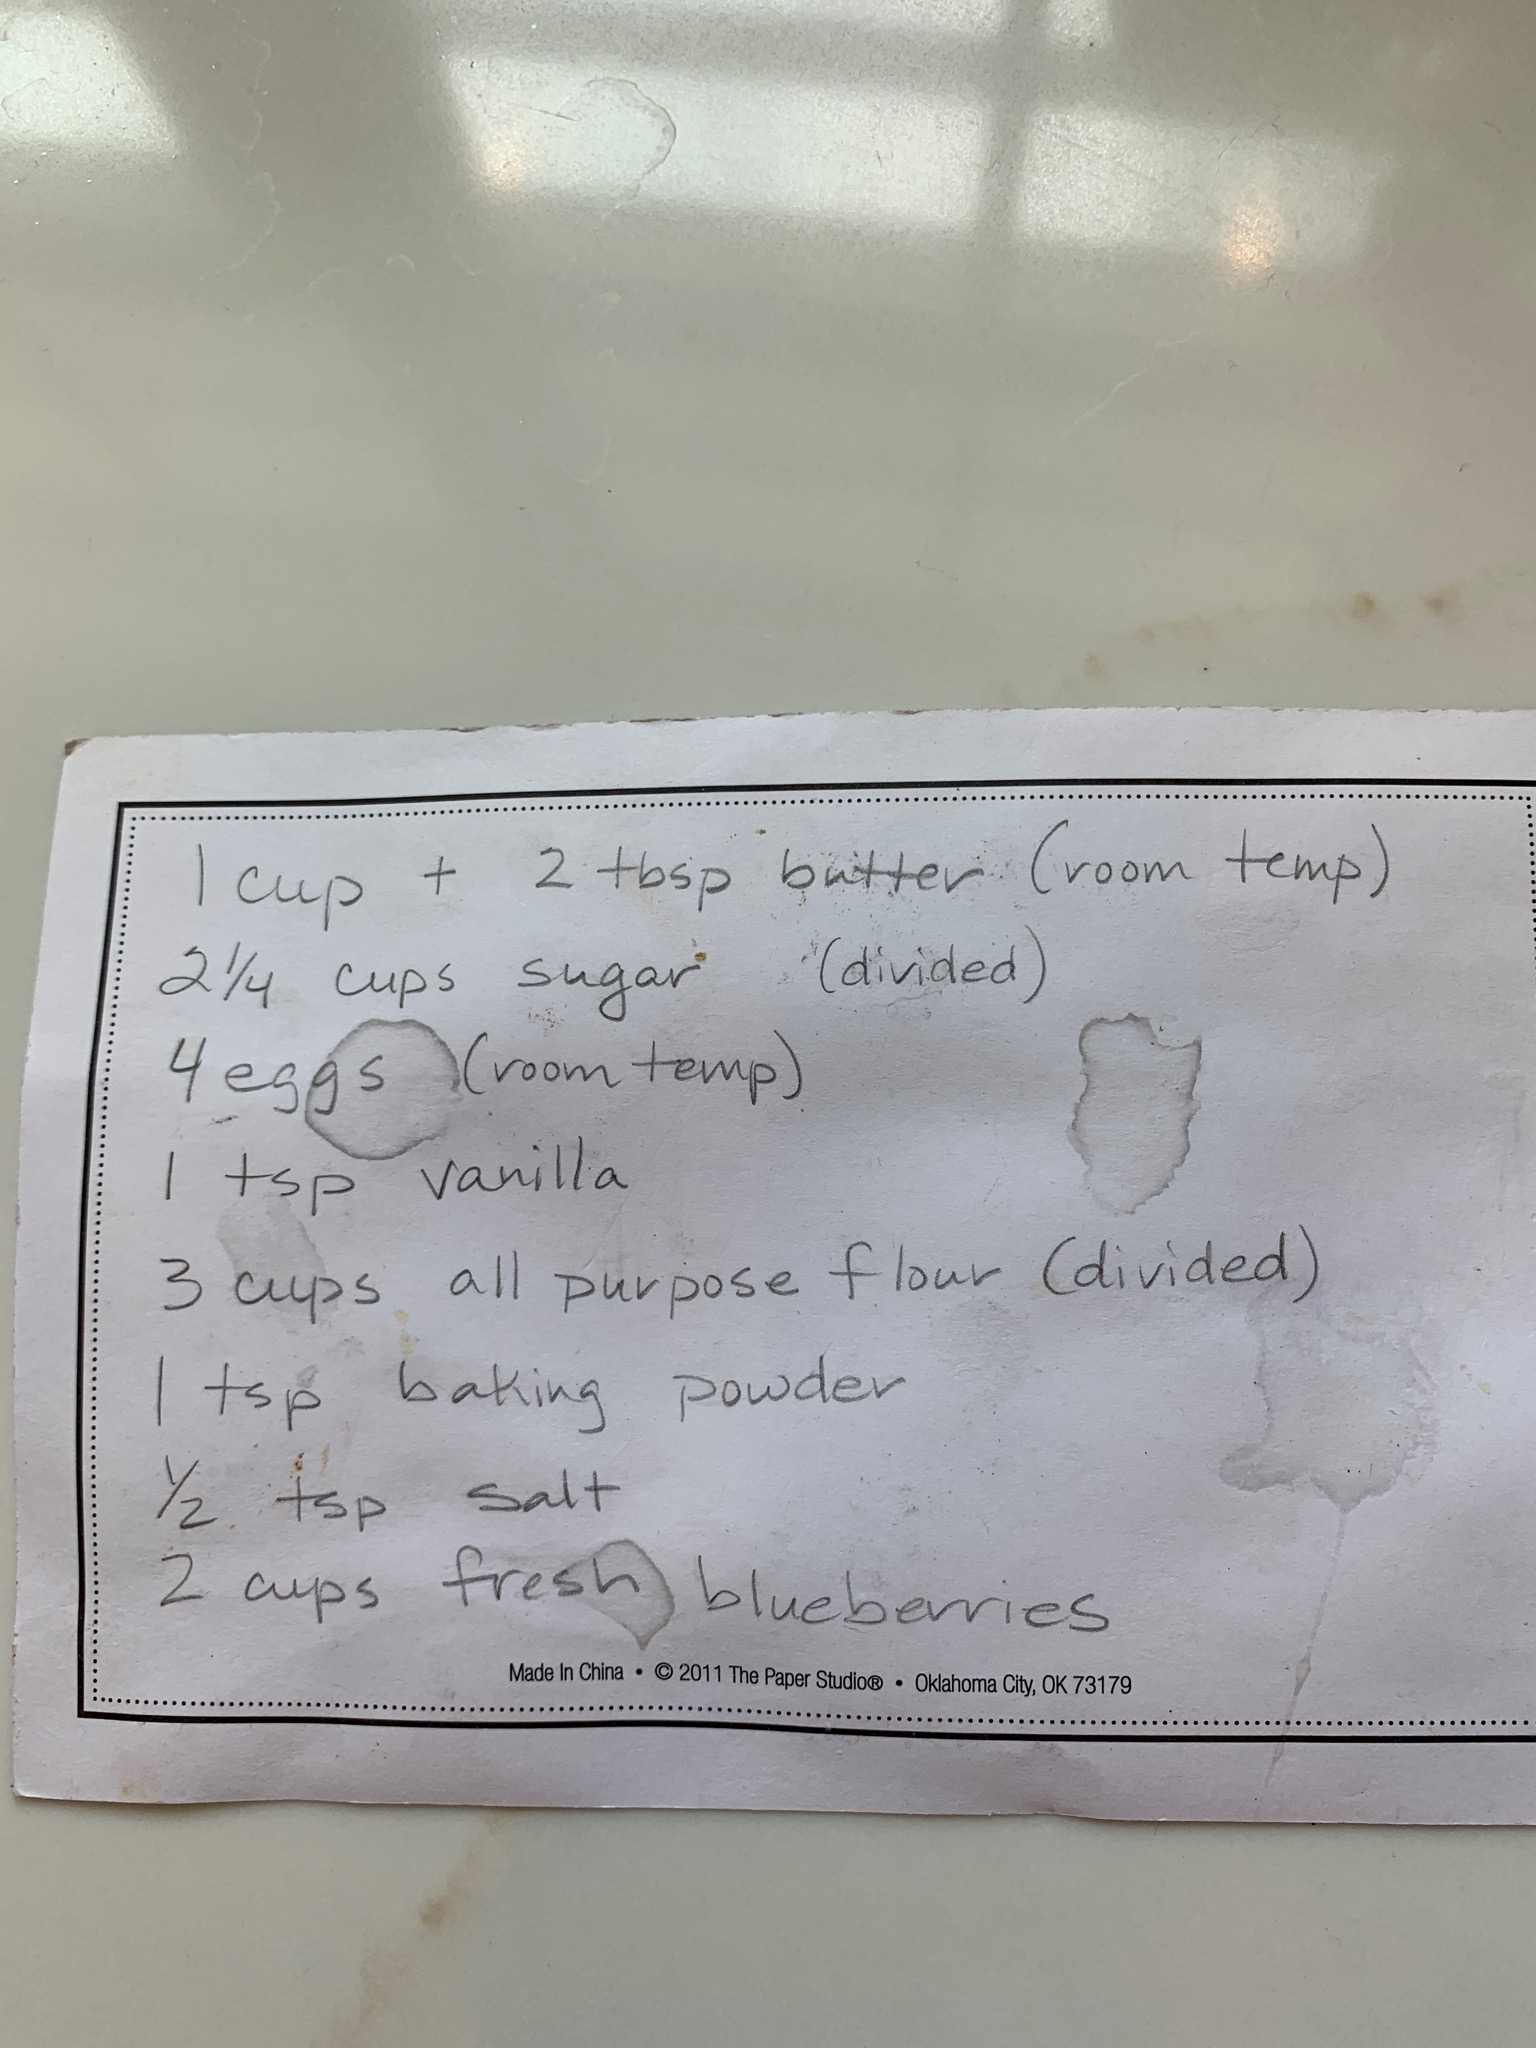 1 cup + 2 tbsp butter (room temp)
2 1/4 cups sugar (divided)
4 eggs (room temp)
1 tsp vanilla
3 cups all purpose flour (divided)
1 tsp baking powder
1/2 tsp salt
2 cups fresh blueberries
Made In China • © 2011 The Paper Studio® • Oklahoma City, OK 73179